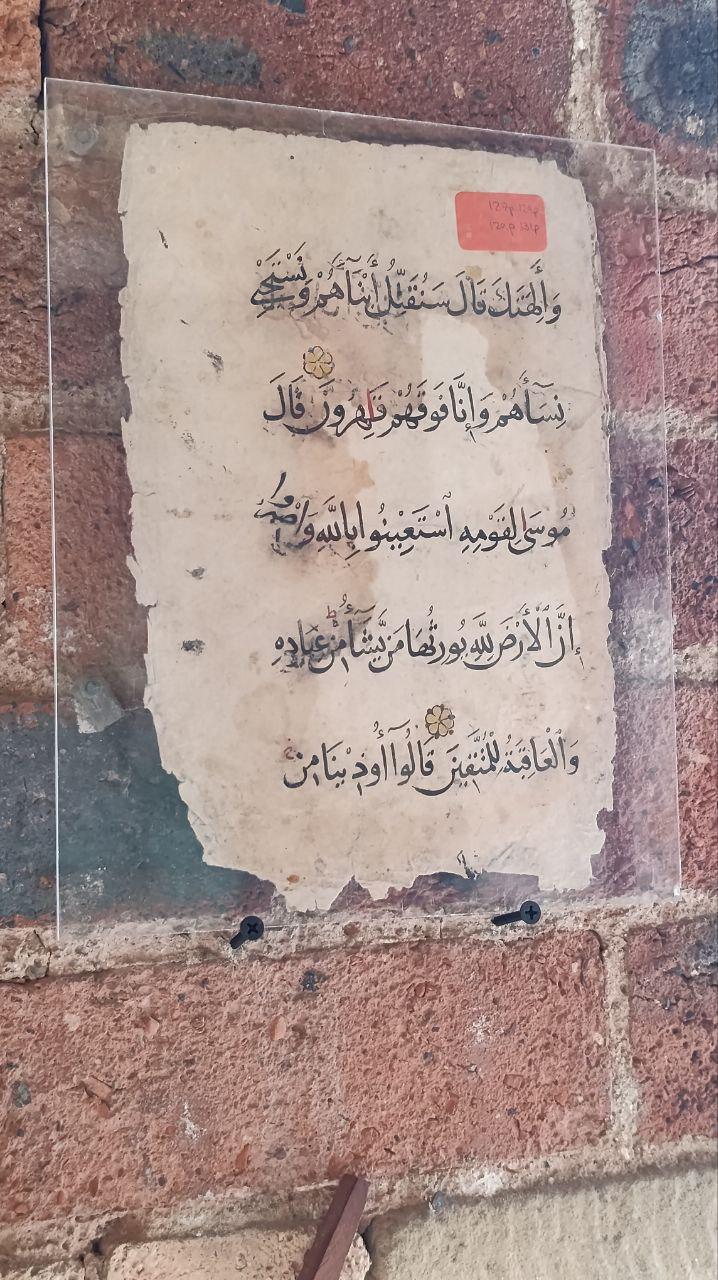 127p 129p
130p 131p
وَآلِهَتَكَ قَالَ سَنُقَتِّلُ أَبْنَآءَهُمْ وَنَسْتَحْيِ
نِسَآءَهُمْ وَإِنَّا فَوْقَهُمْ قَاهِرُونَ قَالَ
مُوسَى لِقَوْمِهِ ٱسْتَعِيْنُوا بِاللَّهِ وَاصْبِرُوا
إِنَّ الْأَرْضَ لِلَّهِ يُورِثُهَا مَنْ يَّشَآءُ مِنْ عِبَادِهِ
وَالْعَاقِبَةُ لِلْمُتَّقِينَ قَالُوٓا أُوذِيْنَا مِنْ